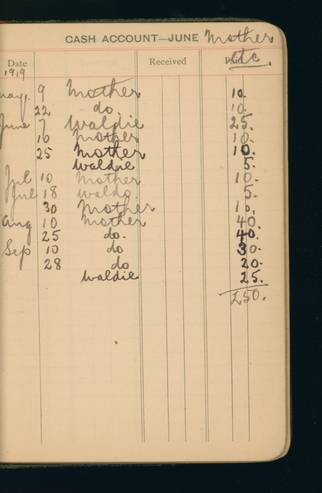 CASH ACCOUNT—JUNE Mother
etc.
Date Received Paid
1919
May 9 Mother 10
22 do 10
June 7 Waldie 25.
10 Mother 10.
25 Mother 10.
Waldie 5.
Jul 10 Mother 10.
Jul 18 Waldo 5.
30 Mother 10.
Aug 10 Mother 40.
25 do. 40.
Sep 10 do 30.
28 do 20.
Waldie 25.
250.